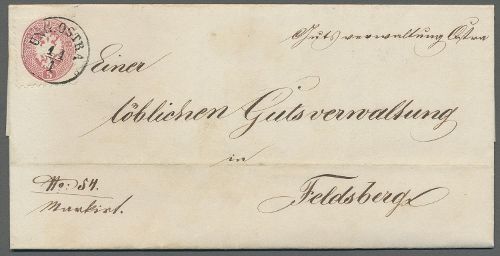 Gutsverwaltung Ostra
UNG. OSTRA
14
1
5
Einer
löblichen Gutsverwaltung
in
Feldsberg
No: 54.
Markirt.